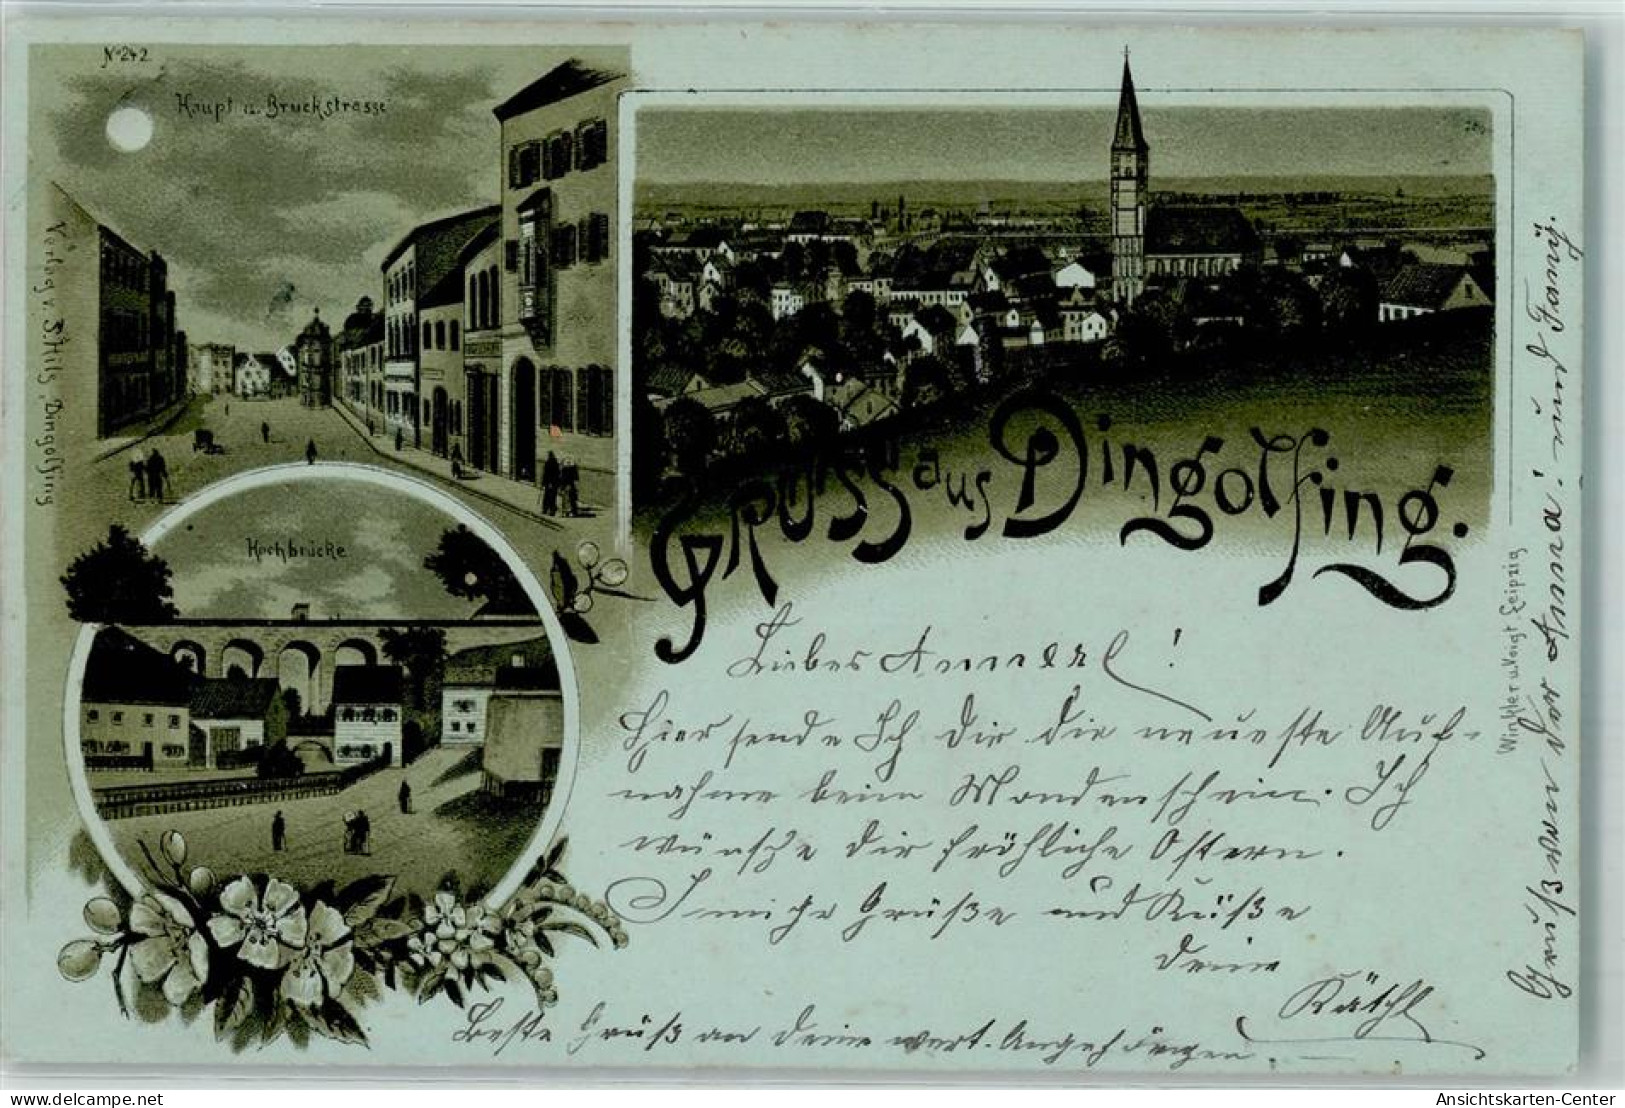 No 242
Haupt u. Bruckstrasse
Verlag v. S. Hills, Dingolfing
Hochbrücke
Gruss aus Dingolfing.
Winkler u. Voigt Leipzig
Liebes Annerl!
Hier sende Ich Dir die neueste Auf-
nahme beim Mondenschein. Ich
wünsche dir fröhliche Ostern.
Innige Grüße und Küße
Deine
Käthl
Beste Grüß an Deine wert. Angehörigen.
Grüß von der Anna! und Fanny.
delcampe.net
Ansichtskarten-Center